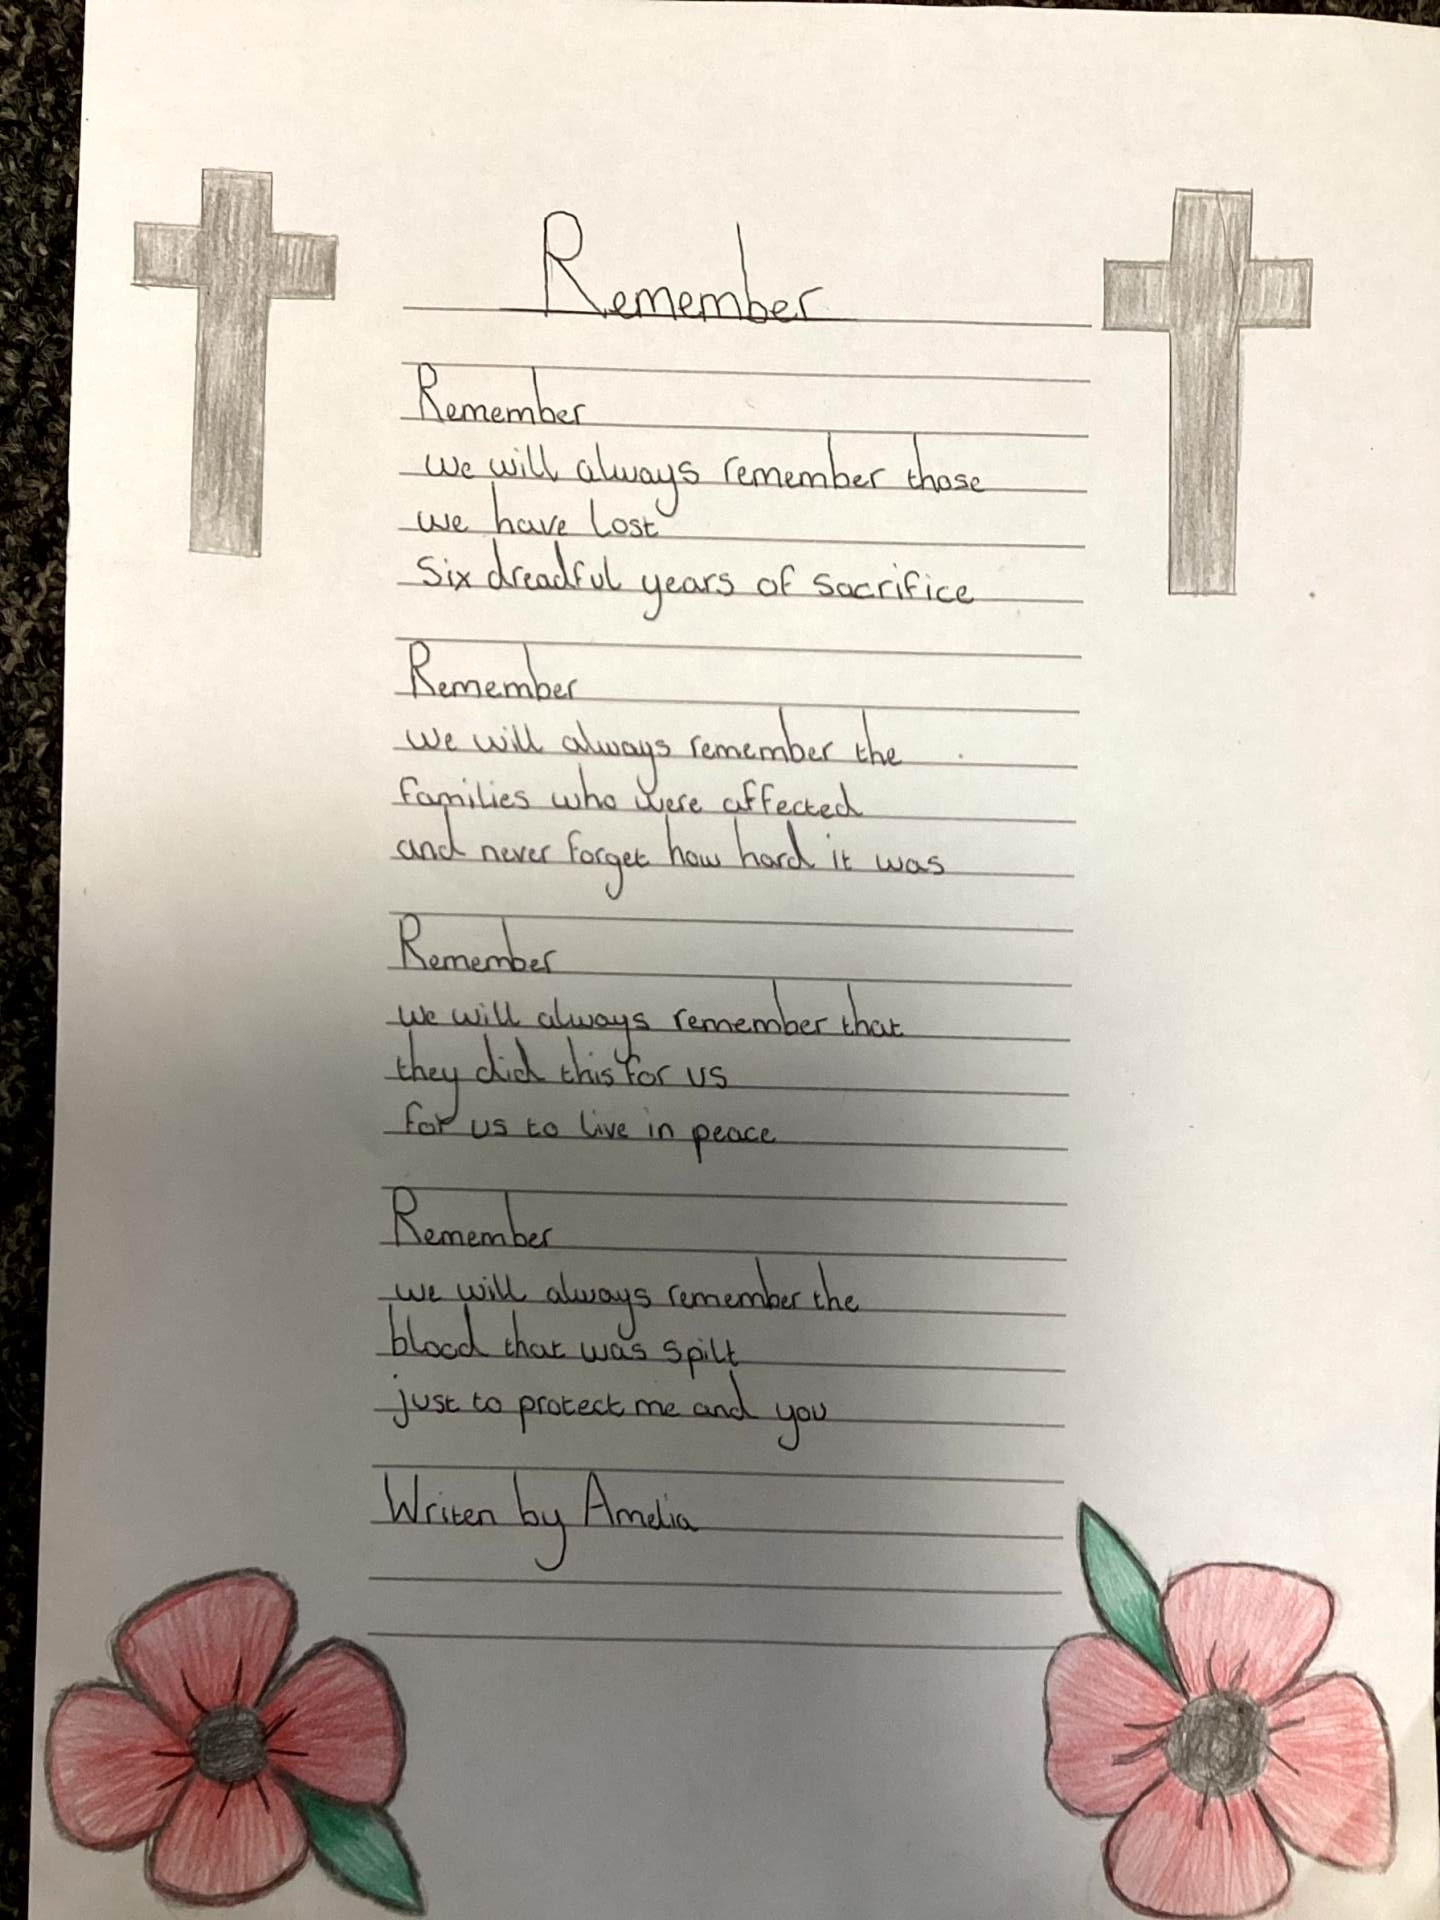 Remember
Remember
we will always remember those
we have lost
Six dreadful years of sacrifice
Remember
we will always remember the
families who were affected
and never forget how hard it was
Remember
we will always remember that
they did this for us
for us to live in peace
Remember
we will always remember the
blood that was spilt
just to protect me and you
Writen by Amelia